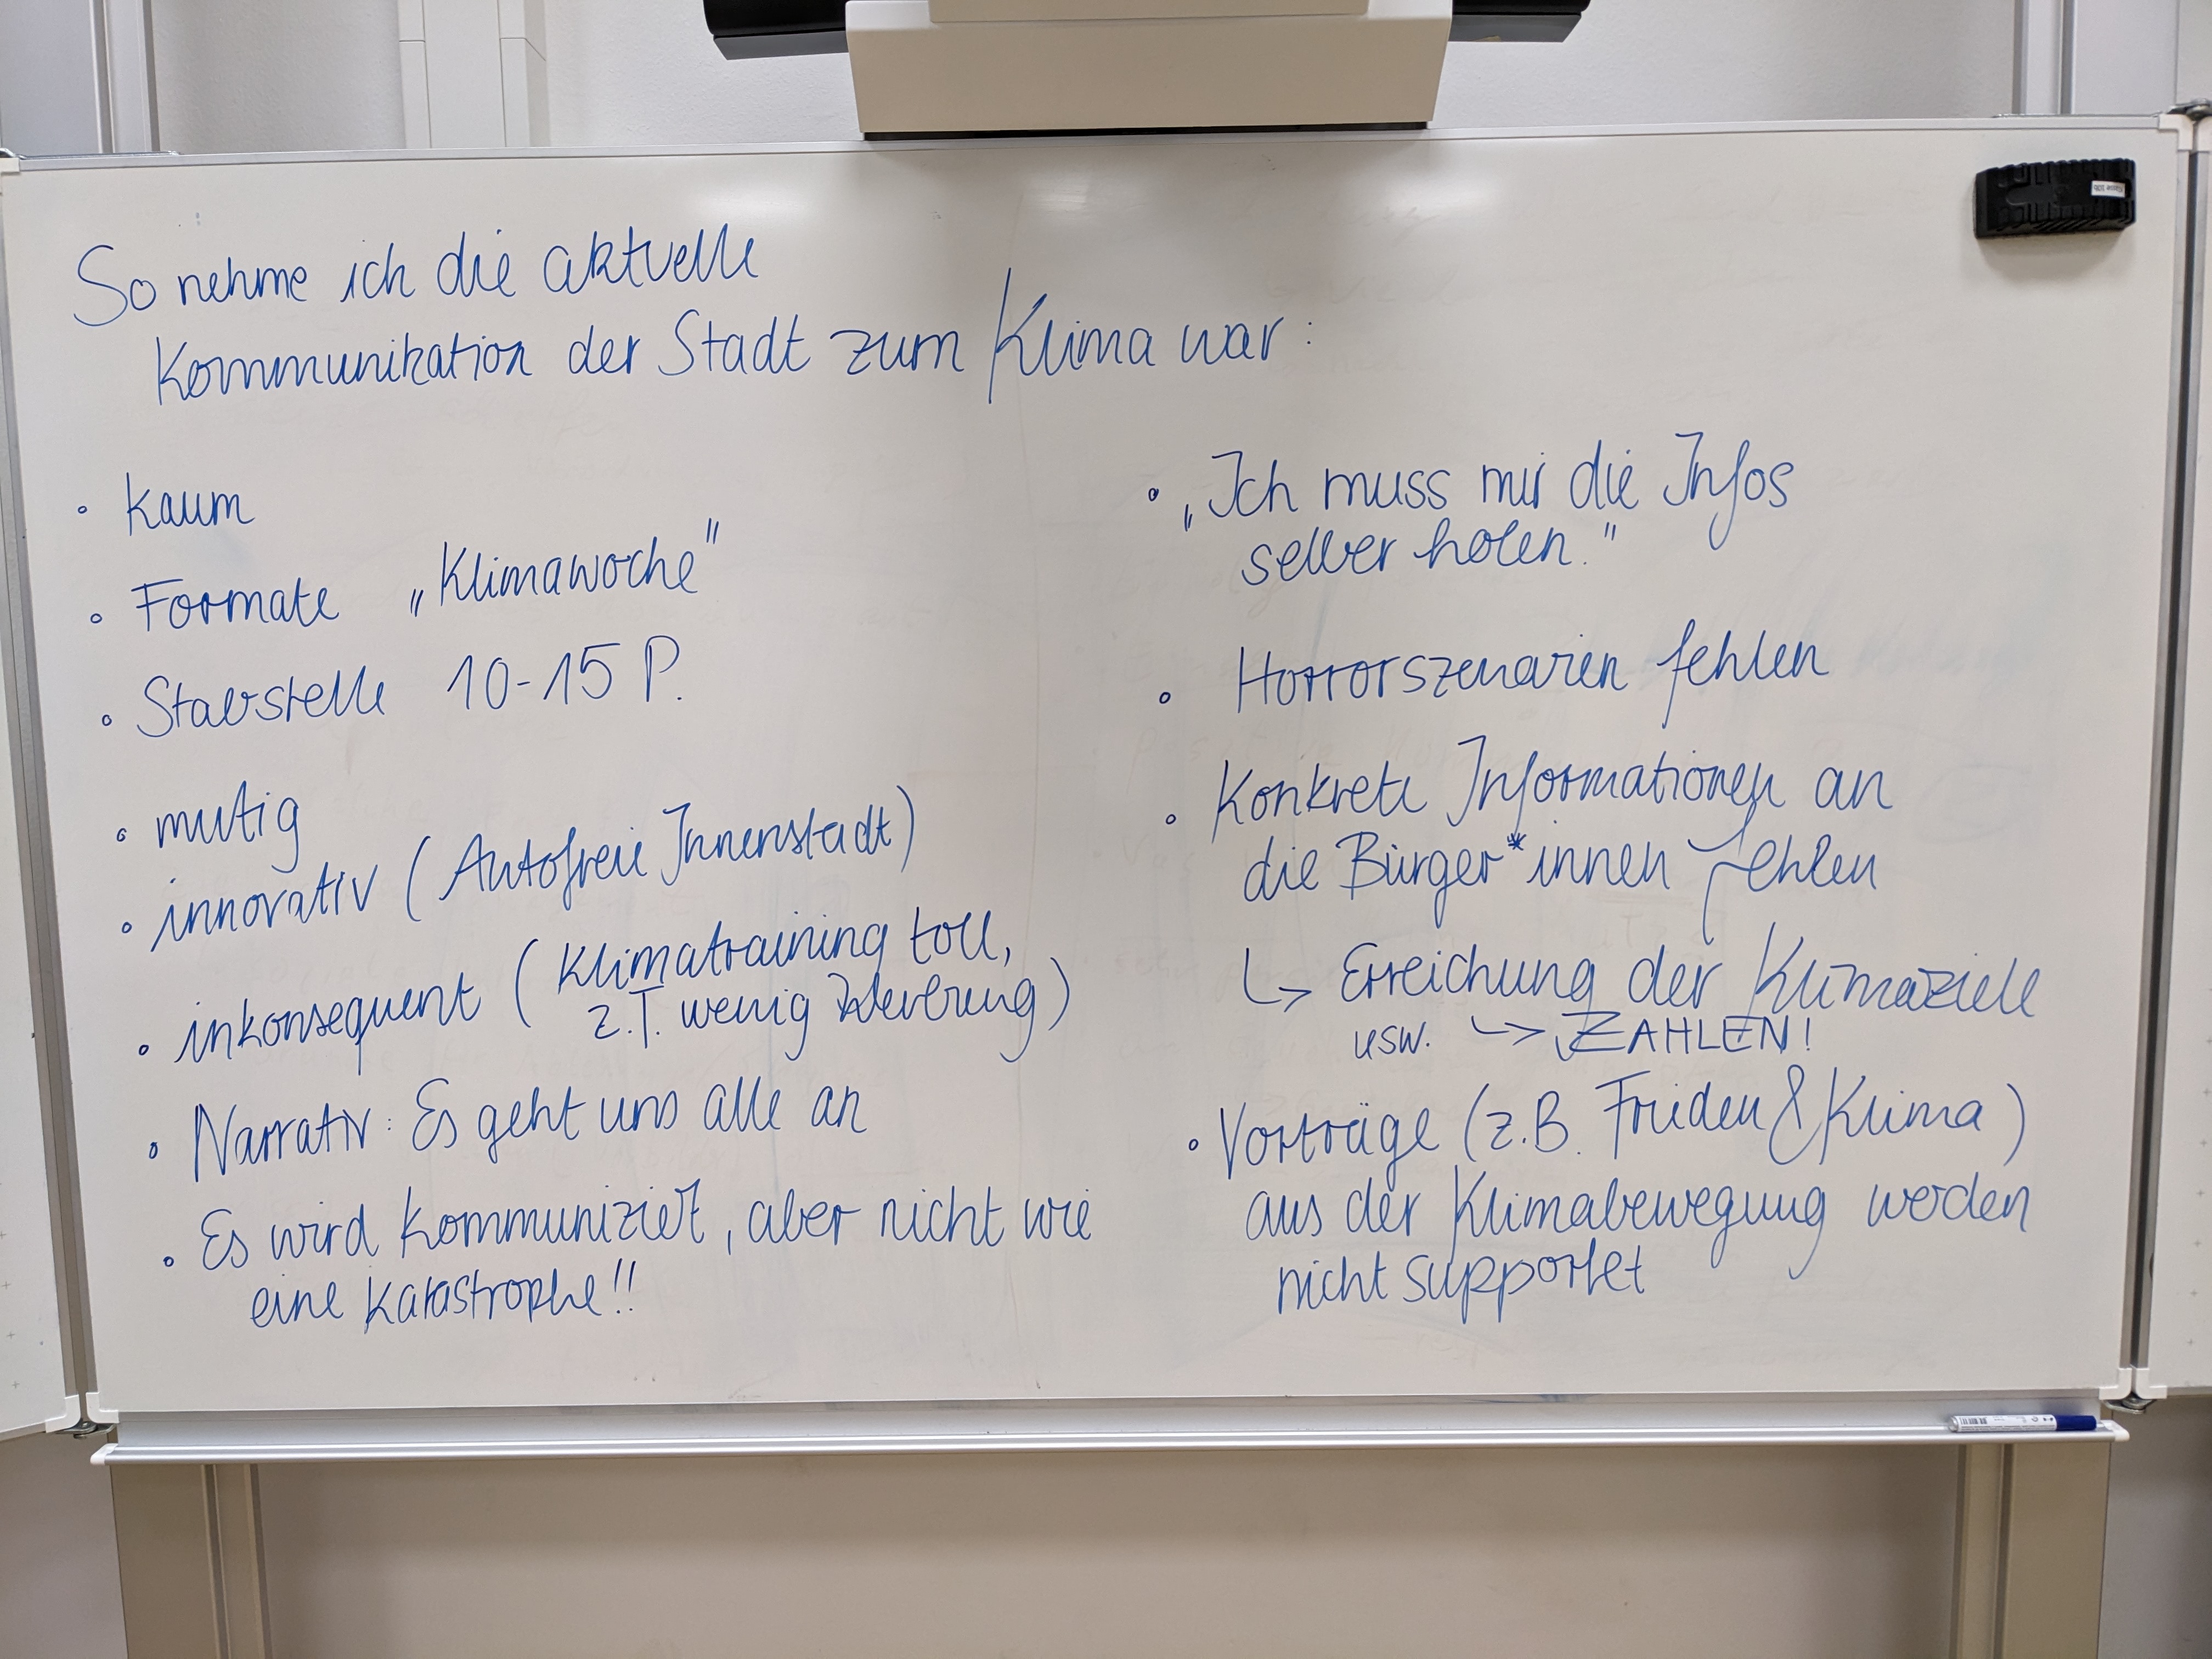 So nehme ich die aktuelle
Kommunikation der Stadt zum Klima war:
• kaum
• Formate „Klimawoche"
• Stabstelle 10-15 P.
• mutig
• innovativ (Autofreie Innenstadt)
• inkonsequent (Klimatraining toll,
z.T. wenig Bewerbung)
• Narrativ: Es geht uns alle an
• Es wird kommuniziert, aber nicht wie
eine Katastrophe!!
• „Ich muss mir die Infos
selber holen."
• Horrorszenarien fehlen
• Konkrete Informationen an
die Bürger*innen fehlen
↳ Erreichung der Klimaziele
usw. ↳ ZAHLEN!
• Vorträge (z.B. Frieden & Klima)
aus der Klimabewegung werden
nicht supportet